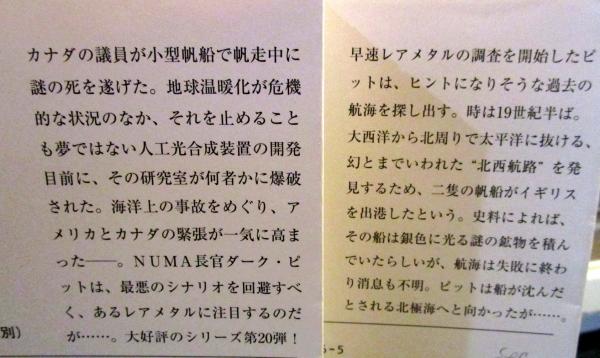 カナダの議員が小型帆船で帆走中に
謎の死を遂げた。地球温暖化が危機
的な状況のなか、それを止めること
も夢ではない人工光合成装置の開発
目前に、その研究室が何者かに爆破
された。海洋上の事故をめぐり、ア
メリカとカナダの緊張が一気に高ま
った――。NUMA長官ダーク・ピ
ットは、最悪のシナリオを回避すべ
く、あるレアメタルに注目するのだ
が……。大好評のシリーズ第20弾！
別）
早速レアメタルの調査を開始したピ
ットは、ヒントになりそうな過去の
航海を探し出す。時は19世紀半ば。
大西洋から北周りで太平洋に抜ける、
幻とまでいわれた“北西航路”を発
見するため、二隻の帆船がイギリス
を出港したという。史料によれば、
その船は銀色に光る謎の鉱物を積ん
でいたらしいが、航海は失敗に終わ
り消息も不明。ピットは船が沈んだ
とされる北極海へと向かったが……。
-5